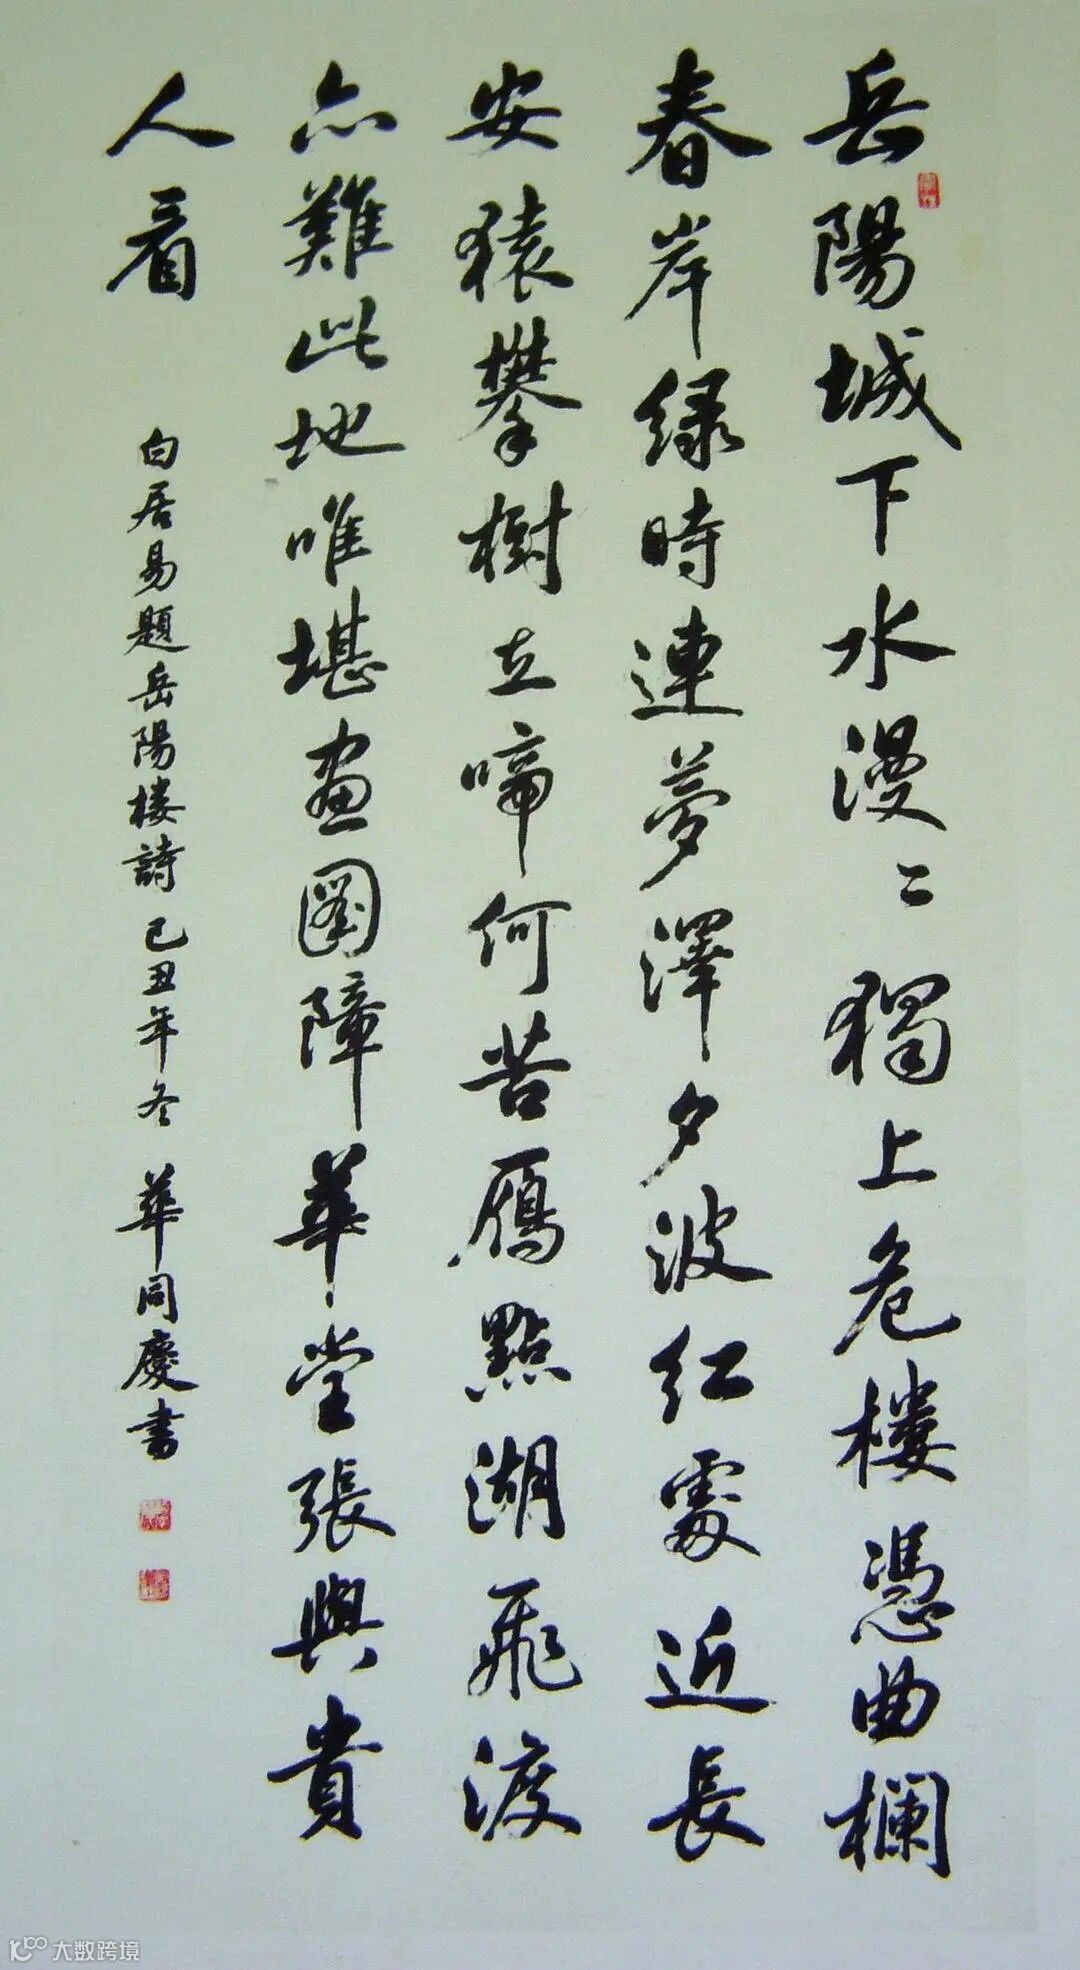 岳陽城下水漫〻獨上危楼憑曲欄
春岸绿時連夢澤夕波红處近長
安猿攀樹立啼何苦雁點湖飛渡
亦難此地唯堪畫圖障華堂張與貴
人看
白居易題岳陽楼詩己丑年冬 華同慶書
大数跨境